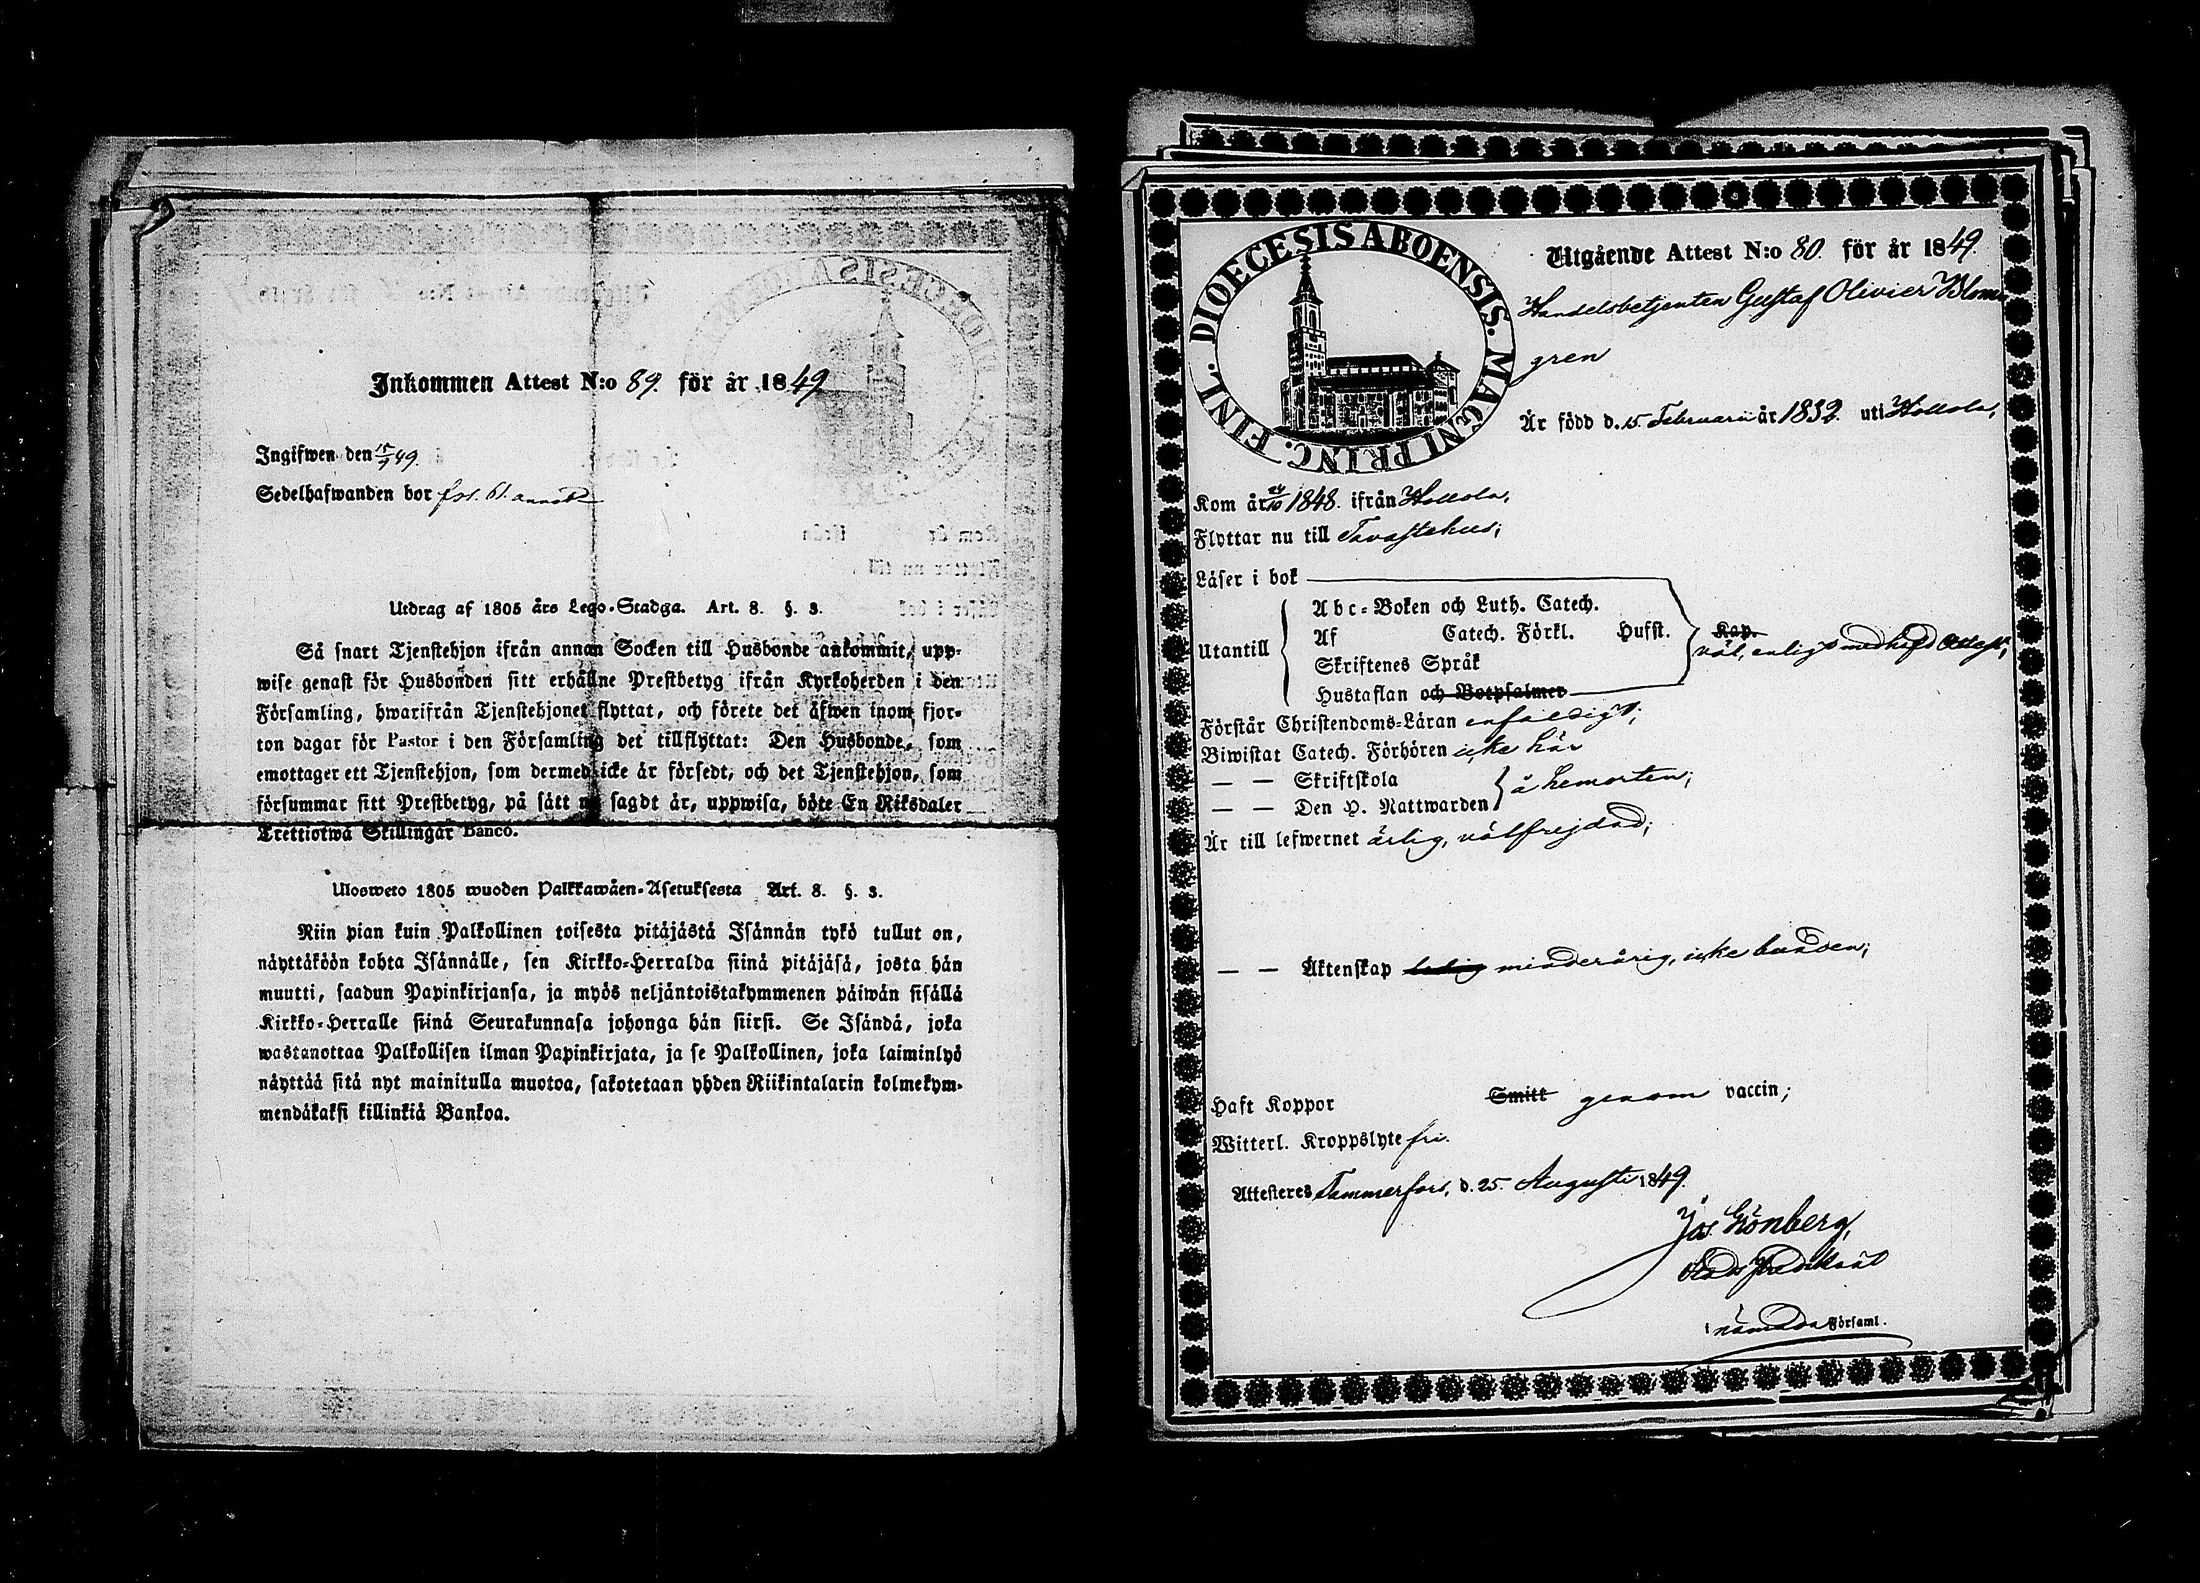 Inkommen Attest N:o 89. för år 1849.
Ingifwen den 15/9 49.
Sedelhafwanden bor fol. 61.
Utdrag af 1805 års Lego-Stadga. Art. 8. §. 3.
Så snart Tjenstehjon ifrån annan Socken till Husbonde ankommit, upp-
wise genast för Husbonden sitt erhållne Prestbetyg ifrån Kyrkoherden i den
Församling, hwarifrån Tjenstehjonet flyttat, och förete det äfwen inom fjor-
ton dagar för Pastor i den Församling det tillflyttat: Den Husbonde, som
emottager ett Tjenstehjon, som dermed icke är försedt, och det Tjenstehjon, som
försummar sitt Prestbetyg, på sätt nu sagdt är, uppwisa, böte En Riksdaler
Trettiotwå Skillingar Banco.
Ulosweto 1805 wuoden Palkkawäen-Asetuksesta Art. 8. §. 3.
Niin pian kuin Palkollinen toisesta pitäjästä Isännän tykö tullut on,
näyttäköön kohta Isännälle, sen Kirkko-Herralda siinä pitäjäsä, josta hän
muutti, saadun Papinkirjansa, ja myös neljäntoistakymmenen päiwän sisällä
Kirkko-Herralle siinä Seurakunnasa johonga hän siirsi. Se Isändä, joka
wastanottaa Palkollisen ilman Papinkirjata, ja se Palkollinen, joka laiminlyö
näyttää sitä nyt mainitulla muotoa, sakotetaan yhden Riikintalarin kolmekym-
mendäkaksi killinkiä Bankoa.
DIOECESIS ABOENSIS. MAGNI PRINC. FINL.
Utgående Attest N:o 80. för år 1849.
Handelsbetjenten Gustaf Olivier Blom
gren
Är född d. 15. Februarii år 1832. uti Hollola,
Kom år 24/10 1848. ifrån Hollola,
Flyttar nu till Tavastehus;
Läser i bok
Utantill
Abc-Boken och Luth. Catech.
Af Catech. Förkl. Husst. Kap.
Skriftenes Språk
Hustaflan och Botpsalmer
väl, enligt medhafd Attest;
Förstår Christendoms-Läran enfaldigt;
Biwistat Catech. Förhören icke här
— — Skriftskola
— — Den H. Nattwarden
å hemorten;
Är till lefwernet ärlig, välfrejdad;
— — Äktenskap ledig minderårig, icke bunden;
Haft Koppor Smitt genom vaccin;
Witterl. Kroppslyte fri.
Attesteres Tammerfors, d. 25. Augusti 1849.
Jos. Grönberg,
i nämnda Församl.